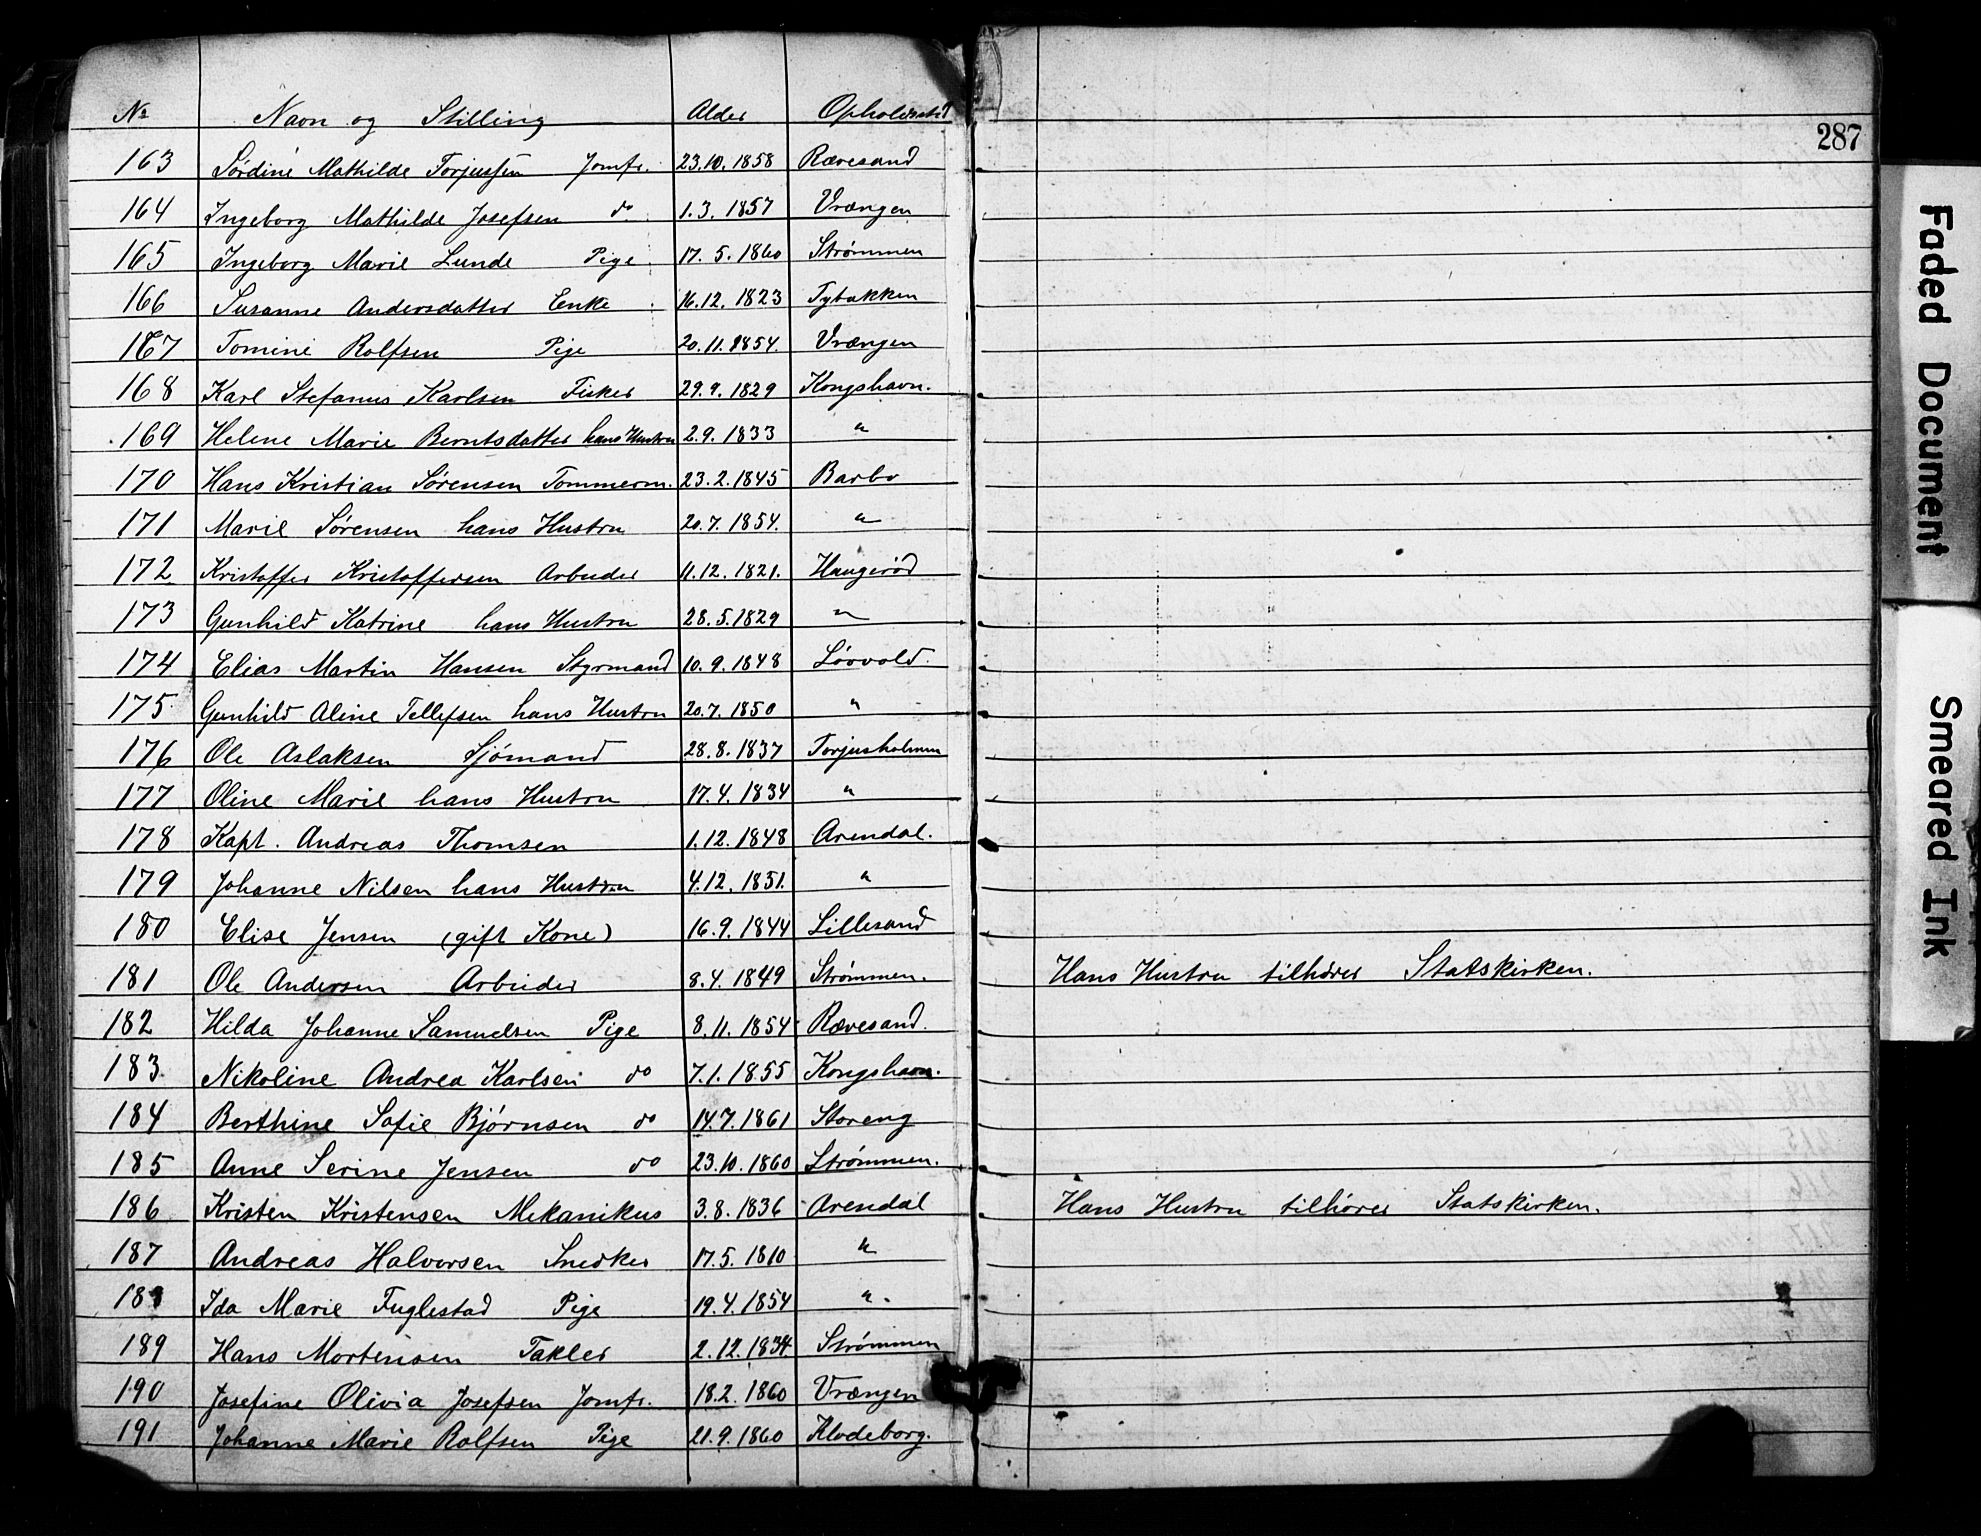 No Navn og Stilling Alder Opholdssted
287
163 Sørdine Mathilde Torjussen Jomfr. 23.10.1858 Rævesand
164 Ingeborg Mathilde Josefsen do 1.3.1857 Vrængen
165 Ingeborg Marie Lunde Pige 17.5.1860 Strømmen
166 Susanne Andersdatter Enke 16.12.1823 Tybakken
167 Tomine Rolfsen Pige 20.11.1854. Vrængen
168 Karl Stefanus Karlsen Fisker 29.9.1829 Kongshavn.
169 Helene Marie Berntsdatter hans Hustru 2.9.1833 "
170 Hans Kristian Sørensen Tømmerm. 23.2.1845 Barbo
171 Marie Sørensen hans Hustru 20.7.1854. "
172 Kristoffer Kristoffersen Arbeider 11.12.1821. Haugerød
173 Gunhild Katrine hans Hustru 28.5.1829 "
174 Elias Martin Hansen Styrmand 10.9.1848 Løvvold.
175 Gunhild Aline Tellefsen hans Hustru 20.7.1850 "
176 Ole Aslaksen Sjømand 28.8.1837 Torjusholmen
177 Oline Marie hans Hustru 17.4.1834 "
178 Kapt. Andreas Thomsen 1.12.1848 Arendal.
179 Johanne Nilsen hans Hustru 4.12.1851. "
180 Elise Jensen (gift Kone) 16.9.1844 Lillesand
181 Ole Andersen Arbeider 8.4.1849 Strømmen. Hans Hustru tilhører Statskirken.
182 Hilda Johanne Samuelsen Pige 8.11.1854 Rævesand.
183 Nikoline Andrea Karlsen do 7.1.1855 Kongshavn.
184 Berthine Sofie Bjørnsen do 14.7.1861 Storeng
185 Anne Serine Jensen do 23.10.1860 Strømmen.
186 Kristen Kristensen Mekanikus 3.8.1836 Arendal Hans Hustru tilhører Statskirken.
187 Andreas Halvorsen Snedker 17.5.1810 "
188 Ida Marie Fuglestad Pige 19.4.1854 "
189 Hans Mortensen Takler 2.12.1834. Strømmen
190 Josefine Olivia Josefsen Jomfr. 18.2.1860 Vrængen
191 Johanne Marie Rolfsen Pige 21.9.1860 Klodeborg.
Faded Document
Smeared Ink